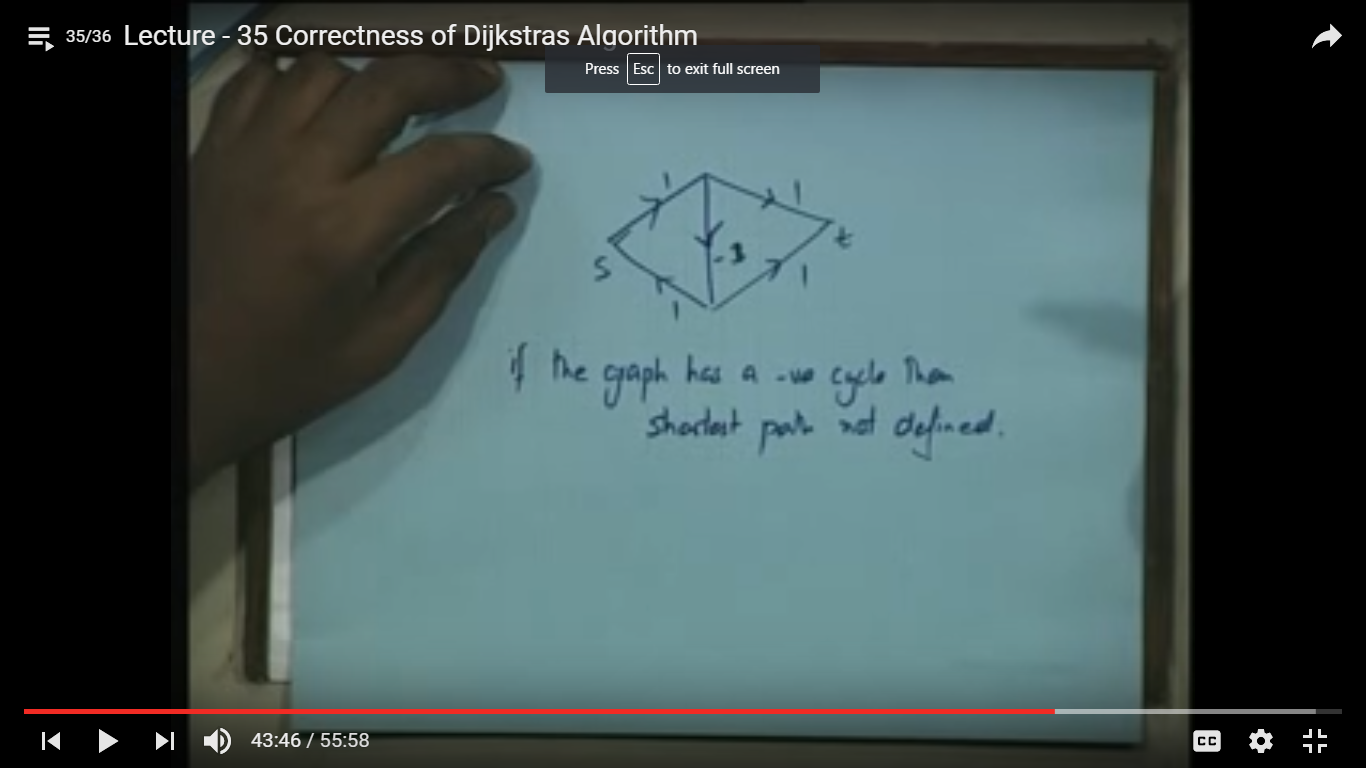 35/36 Lecture - 35 Correctness of Dijkstras Algorithm
Press Esc to exit full screen
1 1
-3
s t
1 1
if the graph has a -ve cycle then
shortest path not defined.
43:46 / 55:58 CC